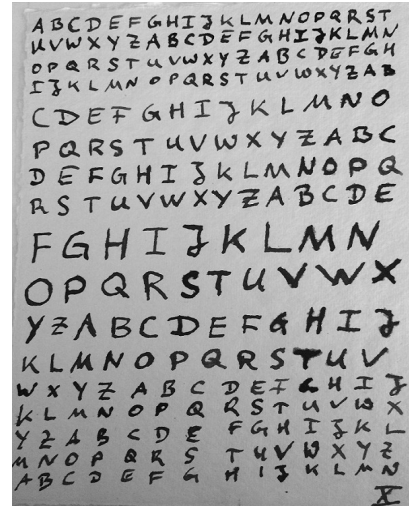 A B C D E F G H I J K L M N O P Q R S T
U V W X Y Z A B C D E F G H I J K L M N
O P Q R S T U V W X Y Z A B C D E F G H
I J K L M N O P Q R S T U V W X Y Z A B
C D E F G H I J K L M N O
P Q R S T U V W X Y Z A B C
D E F G H I J K L M N O P Q
R S T U V W X Y Z A B C D E
F G H I J K L M N
O P Q R S T U V W X
Y Z A B C D E F G H I J
K L M N O P Q R S T U V
W X Y Z A B C D E F G H I J
K L M N O P Q R S T U V W X
Y Z A B C D E F G H I J K L
M N O P Q R S T U V W X Y Z
A B C D E F G H I J K L M N
X